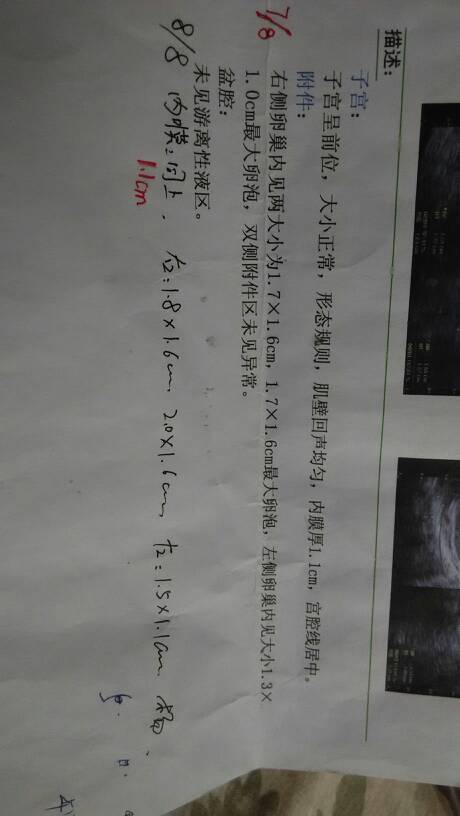 描述：
子宫：
子宫呈前位，大小正常，形态规则，肌壁回声均匀，内膜厚1.1cm，宫腔线居中。
附件：
7/8
右侧卵巢内见两大小为1.7×1.6cm，1.7×1.6cm最大卵泡，左侧卵巢内见大小1.3×
1.0cm最大卵泡，双侧附件区未见异常。
盆腔：
未见游离性液区。
8/8 内膜：同上. 右：1.8×1.6cm、2.0×1.6cm、左：1.5×1.1cm.
1.1cm